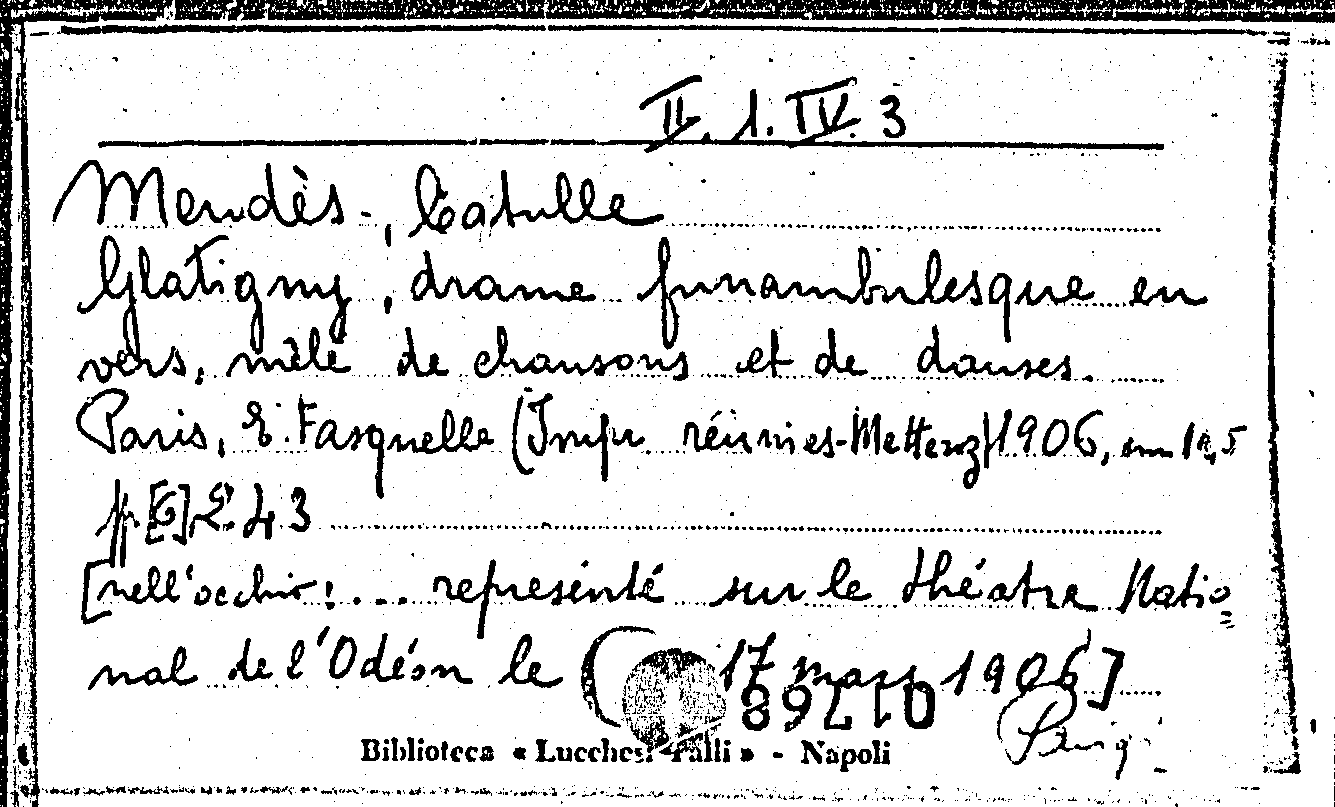 II. 1. IV. 3
Mendès, Catulle
Glatigny, drame funambulesque en
vers, mêlé de chansons et de danses.
Paris, E. Fasquelle (Impr. réunies-Metteroz) 1906, cm 18,5
pp [6] 243
[nell'occhio: ... représenté sur le théatre Natio
nal de l'Odéon le 17 mars 1906]
011768
Biblioteca « Lucchesi-Palli » - Napoli